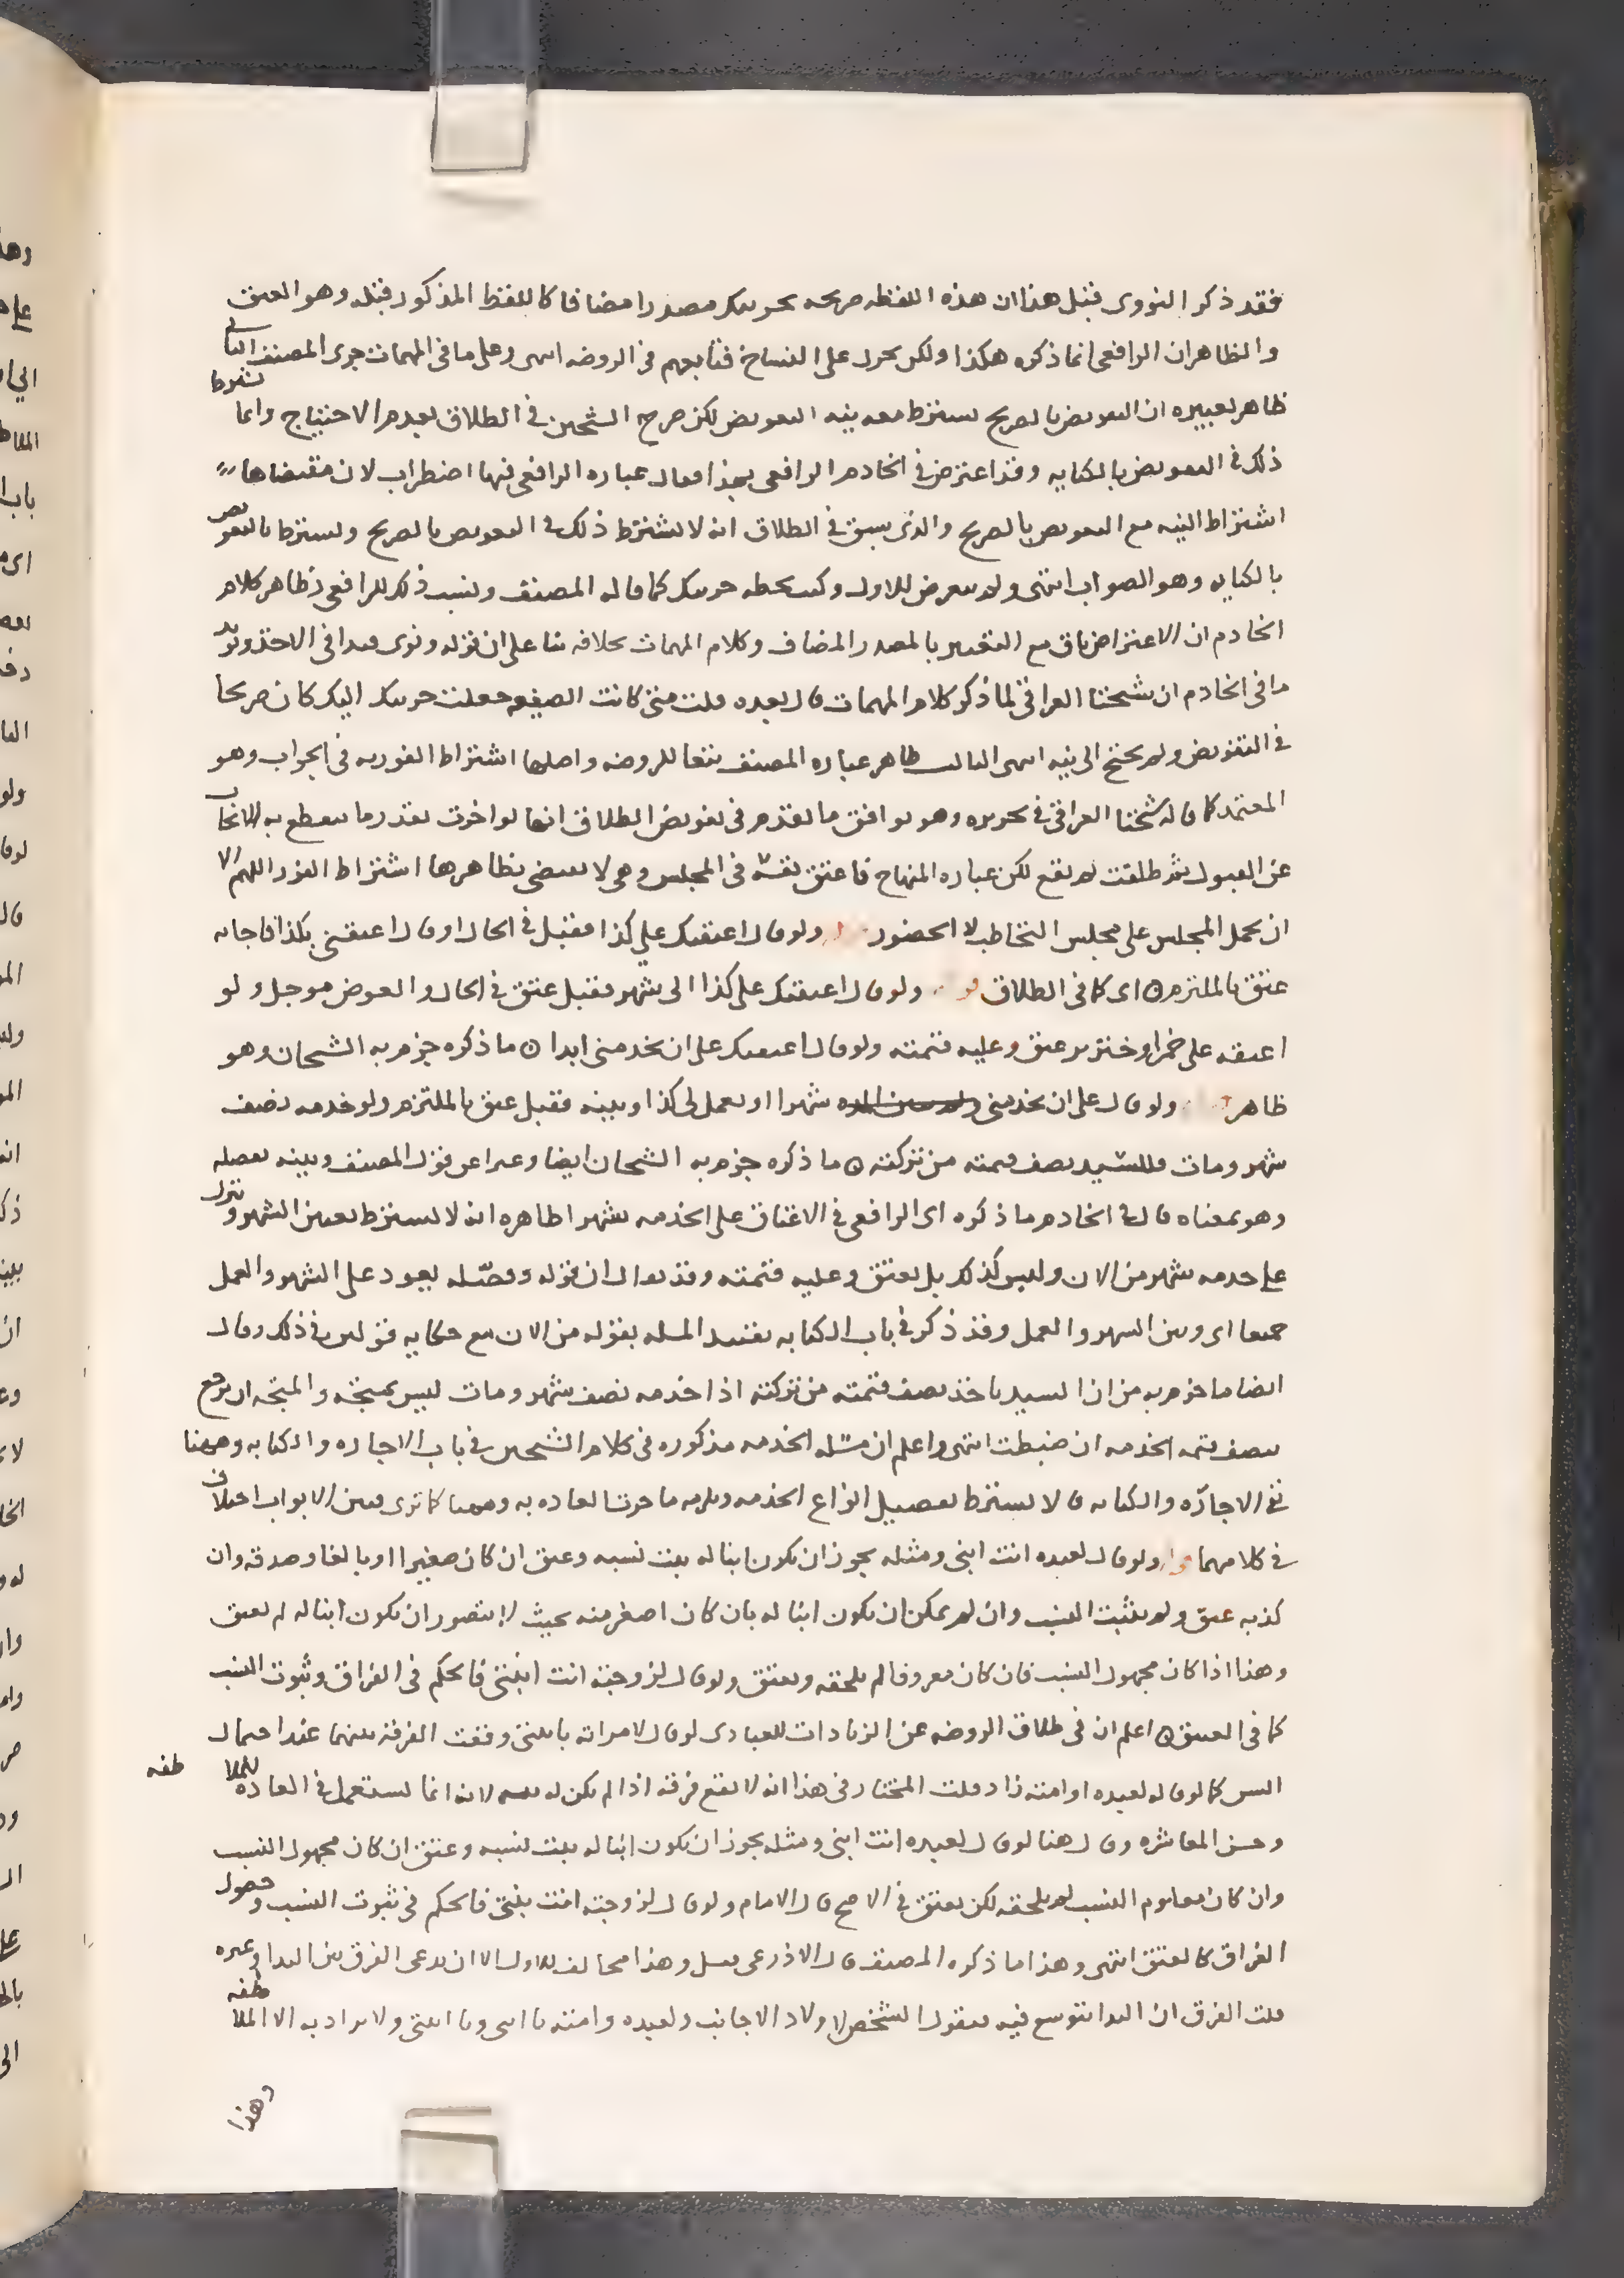 فقد ذكر النووى قبل هذا ان هذه اللفظه صريحه تحريرك مصدرا مضافا كاللفظ المذكور قبله وهو العتق
والظاهر ان الرافعى انما ذكره هكذا ولكن تحرف على النساخ فتابعهم فى الروضه انتهى وعلى ما فى المهمات جرى المصنف الثانى
ظاهر تعبيره ان التفويض بالصريح يشترط معه نيه التفويض لكن صرح الشيخين فى الطلاق بعدم الاحتياج وانما يشترط
ذلك فى التفويض بالكنايه وقد اعترض فى الخادم الرافعى بهذا فقال عباره الرافعى فيها اضطراب لان مقتضاها
اشتراط النيه مع التفويض بالصريح والذى سبق فى الطلاق انه لا يشترط ذلك فى التفويض بالصريح ويشترط بالتفويض
بالكنايه وهو الصواب انتهى ولم يتعرض للاول وكتب بخطه حريتك كما قاله المصنف ونسب ذلك للرافعى فظاهر كلام
الخادم ان الاعتراض باق مع التعبير بالمصدر المضاف وكلام المهمات بخلافه بنا على ان قوله ونوى قيدا فى الاخذ ويؤيد
ما فى الخادم ان شيخنا العراقى لما ذكر كلام المهمات قال بعده قلت متى كانت الصيغه جعلت حريتك اليك كان صريحا
فى التفويض ولم يحتج الى نيه انتهى الثالث ظاهر عباره المصنف تبعا للروضه واصلها اشتراط الفوريه فى الجواب وهو
المعتمد كما قاله شيخنا العراقى فى تحريره وهو يوافق ما تقدم فى تفويض الطلاق انها لو اخرت بقدر ما ينقطع به الايجاب
عن القبول ثم طلقت لم يقع لكن عباره المنهاج فاعتق نفسه فى المجلس وهى لا تقتضى بظاهرها اشتراط الفور اللهم الا
ان يحمل المجلس على مجلس التخاطب لا الحضور ولو قال اعتقتك على كذا فقبل فى الحال او قال اعتقنى بكذا فاجابه
عتق بالملتزم ن اى كما فى الطلاق ولو قال اعتقتك على كذا الى شهر فقبل عتق فى الحال والعوض موجل ولو
اعتقه على خمر او خنزير عتق وعليه قيمته ولو قال اعتقتك على ان تخدمنى ابدا ن ما ذكره جزم به الشيخان وهو
ظاهر ولو قال على ان تخدمنى شهرا او تعمل لى كذا وبينه فقبل عتق بالملتزم ولو خدمه نصف
شهر ومات فللسيد نصف قيمته من تركته ن ما ذكره جزم به الشيخان ايضا وعبرا عن قول المصنف وبينه بفصله
وهو بمعناه قال فى الخادم ما ذكره اى الرافعى فى الاعتاق على الخدمه شهرا ظاهره انه لا يشترط تعيين الشهر وتنزل
على خدمه شهر من الان وليس كذلك بل يعتق وعليه قيمته وقد يقال ان قوله وفصّله يعود على الشهر والعمل
جميعا اى وبين الشهر والعمل وقد ذكر فى باب الكتابه تقييد المسله بقوله من الان مع حكايه قولين فى ذلك وقال
ايضا ما جزم به من ان السيد ياخذ نصف قيمته من تركته اذا خدمه نصف شهر ومات ليس بمتجه والمتجه ان يرجع
بنصف قيمه الخدمه ان ضبطت انتهى واعلم ان مسّله الخدمه مذكوره فى كلام الشيخين فى باب الاجاره والكتابه وههنا
ففى الاجاره والكتابه قالا يشترط تفصيل انواع الخدمه ويلزمه ما جرت العاده به وههنا كما ترى فبين الابواب اختلاف
فى كلامهما ولو قال لعبده انت ابنى ومثله يجوز ان يكون ابنا له يثبت نسبه وعتق ان كان صغيرا او بالغا وصدقه وان
كذبه عتق ولم يثبت النسب وان لم يمكن ان يكون ابنا له بان كان اصغر منه بحيث لا يتصور ان يكون ابنا له لم يعتق
وهذا اذا كان مجهول النسب فان كان معروفا لم يلحقه ويعتق ولو قال لزوجته انت ابنتى فالحكم فى الفراق وثبوت النسب
كما فى العتق ن اعلم ان فى طلاق الروضه عن الزيادات للعبادى لو قال لامراته يا بنتى وقعت الفرقه بينهما عند احتمال
السن كما لو قاله لعبده او امته زاد قلت المختار فى هذا انه لا يقع فرقه اذا لم يكن له نيه لانه انما يستعمل فى العاده للملاطفه
وحسن المعاشره وقال هنا لو قال لعبده انت ابنى ومثله يجوز ان يكون ابنا له يثبت نسبه وعتق ان كان مجهول النسب
وان كان معلوم النسب لم يلحقه لكن يعتق فى الاصح قال الامام ولو قال لزوجته انت بنتى فالحكم فى ثبوت النسب وحصول
الفراق كالعتق انتهى وهذا ما ذكره المصنف قال الاذرعى وهذا مخالف للاول الا ان يدعى الفرق بين الندا وغيره
قلت الفرق ان الندا يتوسع فيه فيقول الشخص لاولاد الاجانب ولعبده وامته يا ابنى ويا ابنتى ولا يراد به الا الملاطفه
وهذا